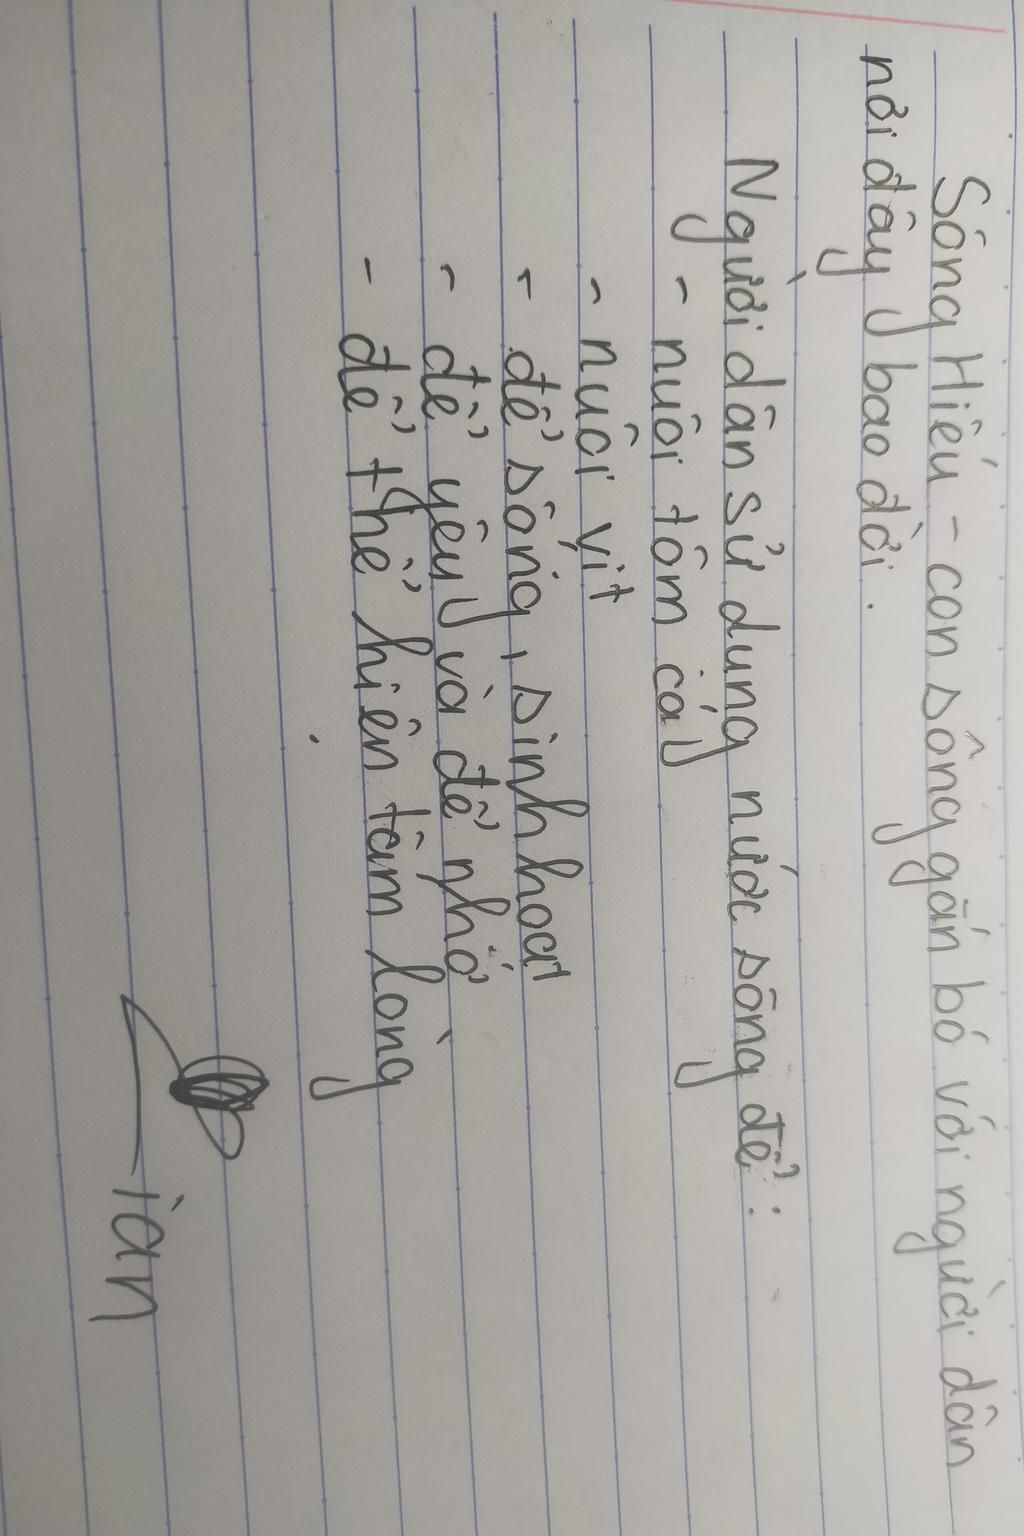 Sông Hiếu - con sông gắn bó với người dân
nơi đây bao đời.
Người dân sử dụng nước sông để:
- nuôi tôm cáy
- nuôi vịt
- để sống, sinh hoạt
- để yêu và để nhớ
- để thể hiện tấm lòng